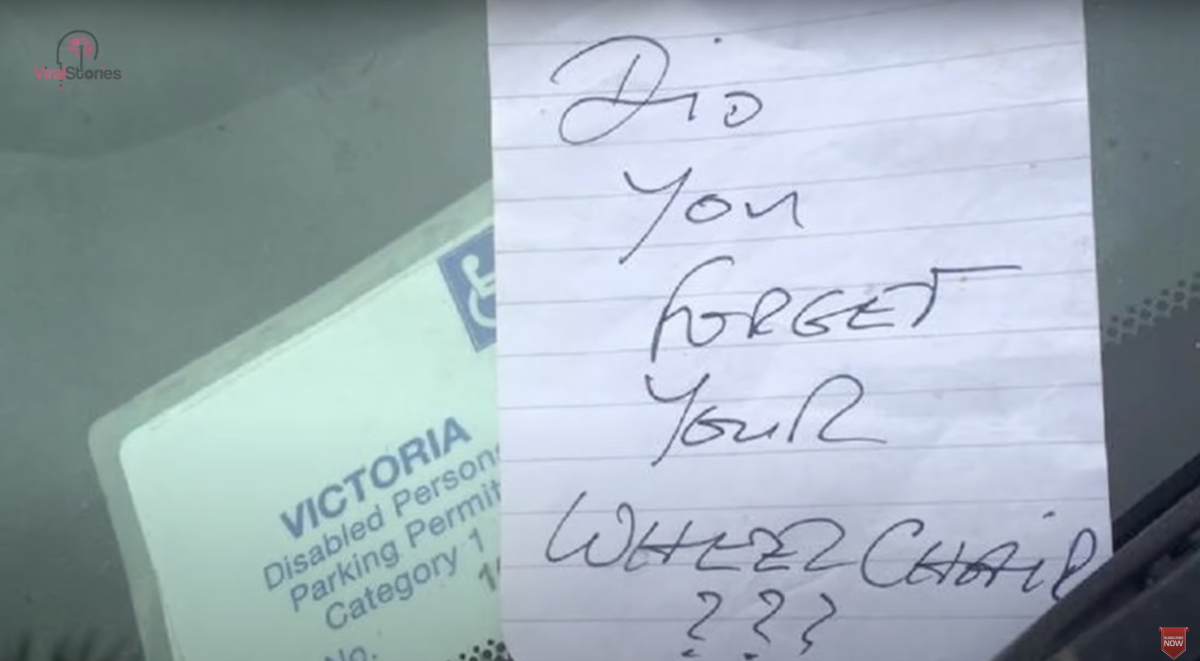 ViralStories
Did
You
FORGET
YouR
WHEELCHAiR
???
VICTORIA
Disabled Person
Parking Permit
Category 1
No.
SUBSCRIBE
NOW